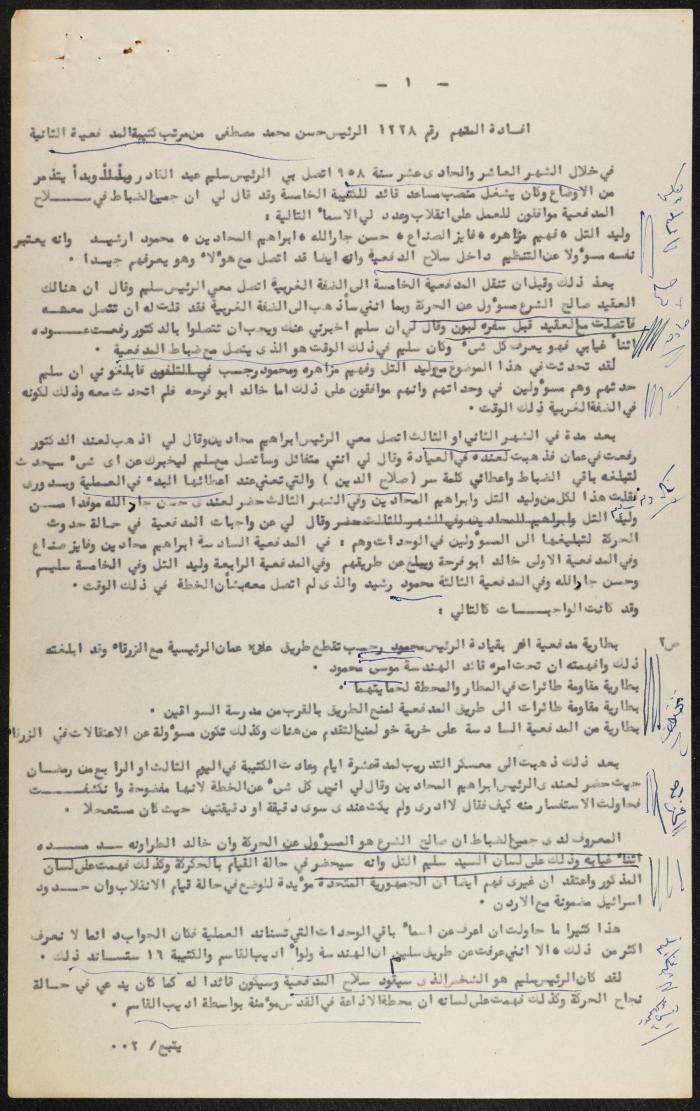 - ١ -
افادة المتهم رقم ١٢٢٨ الرئيس حسن محمد مصطفى من مرتب كتيبة المدفعية الثانية
في خلال الشهر العاشر والحادى عشر سنة ٩٥٨ اتصل بي الرئيس سليم عبد القادر وبدأ يتذمر
من الاوضاع وكان يشغل منصب مساعد قائد للكتيبة الخامسة وقد قال لي ان جميع الضباط في سلاح
المدفعية موافقون للعمل على انقلاب وعدد لي الاسماء التالية :
وليد التل ، فهيم مزاهره ، فايز الصناع ، حسن جارالله ، ابراهيم المحادين ، محمود ارشيد وانه يعتبر
نفسه مسؤولا عن التنظيم داخل سلاح الدفعية وانه ايضا قد اتصل مع هؤلاء وهو يعرفهم جيدا .
بعد ذلك وقبل ان تنقل المدفعية الخامسة الى الضفة الغربية اتصل معي الرئيس سليم وقال ان هنالك
العقيد صالح الشرع مسؤول عن الحركة وبما انني سأذهب الى الضفة الغربية فقد قلت له ان تتصل معه
فاتصلت مع العقيد قبل سفره لبون وقال لي ان سليم اخبرني عنك ويجب ان تتصلوا بالدكتور رفعت عوده
اثناء غيابي فهو يعرف كل شيء وكان سليم في ذلك الوقت هو الذى يتصل مع ضباط المدفعية .
لقد تحدثت في هذا الموضوع مع وليد التل وفهيم مزاهره ومحمود رجسب في التلفون فابلغوني ان سليم
حدثهم وهم مسؤولين في وحداتهم وانهم موافقون على ذلك اما خالد ابو فرحه فلم اتحدث معه وذلك لكونه
في الضفة الغربية ذلك الوقت .
بعد مدة في الشهر الثاني او الثالث اتصل معي الرئيس ابراهيم محادين وقال لي اذهب لعند الدكتور
رفعت في عمان فذهبت لعنده في العيادة وقال لي انني متفائل وسأتصل مع سليم ليخبرك عن اى شيء سيحدث
لتبلغه باقي الضباط واعطاني كلمة سر (صلاح الدين ) والتي تعني عند اعطائها البدء في العملية وبدورى
نقلت هذا لكل من وليد التل وابراهيم المحادين وفي الشهر الثالث حضر لعندى حسن جارالله موفدا من
وليد التل وابراهيم المحادين وفي الشهر الثالث حضر وقال لي عن واجبات المدفعية في حالة حدوث
الحركة لتبليغها الى المسؤولين في الوحدات وهم : في المدفعية السادسة ابراهيم محادين وفايز صناع
وفي المدفعية الاولى خالد ابو فرحة ويبلغ عن طريقهم وفي المدفعية الرابعة وليد التل وفي الخامسة سليم
وحسن جارالله وفي المدفعية الثالثة محمود رشيد والذى لم اتصل معه بشأن الخطة في ذلك الوقت .
وقد كانت الواجبات كالتالي :
ص٢ بطارية مدفعية اخر بقيادة الرئيس محمود رجسب تقطع طريق عمان الرئيسية مع الزرقاء وقد ابلغته
ذلك وافهمته ان تحت امره قائد الهندسة موسى محمود .
بطارية مقاومة طائرات في المطار والمحطة لحمايتهما .
بطارية مقاومة طائرات الى طريق المدفعية لمنع الطريق بالقرب من مدرسة السواقين .
بطارية من المدفعية السادسة على خربة خو لمنع التقدم من هناك وكذلك تكون مسؤولة عن الاعتقالات في الزرقاء
بعد ذلك ذهبت الى معسكر التدريب لمدة عشرة ايام وعادت الكتيبة في اليوم الثالث او الرابع من رمضان
حيث حضر لعندى الرئيس ابراهيم المحادين وقال لي انهي كل شيء عن الخطة لانها مفضوحة وانكشفت
فحاولت الاستفسار منه كيف فقال لا ادرى ولم يمكث عندى سوى دقيقة او دقيقتين حيث كان مستعجلا .
المعروف لدى جميع الضباط ان صالح الشرع هو المسؤول عن الحركة وان خالد الطراونه سد مسده
اثناء غيابه وذلك على لسان السيد سليم التل وانه سيحضر في حالة القيام بالحركة وكذلك فهمت على لسان
المذكور واعتقد ان غيرى فهم ايضا ان الجمهورية المتحدة مؤيدة للوضع في حالة قيام الانقلاب وان حدود
اسرائيل مضمونة مع الاردن .
هذا كثيرا ما حاولت ان اعرف عن اسماء باقي الوحدات التي تساند العملية فكان الجواب دائما لا نعرف
اكثر من ذلك ، الا انني عرفت عن طريق سليم ان الهندسة ولواء اديب القاسم والكتيبة ١٦ ستساند ذلك .
لقد كان الرئيس سليم هو الشخص الذى سيقود سلاح المدفعية وسيكون قائدا له كما كان يدعي في حالة
نجاح الحركة وكذلك فهمت على لسانه ان محطة الاذاعة في القدس مؤمنة بواسطة اديب القاسم .
يتبع/ ٠٠٢